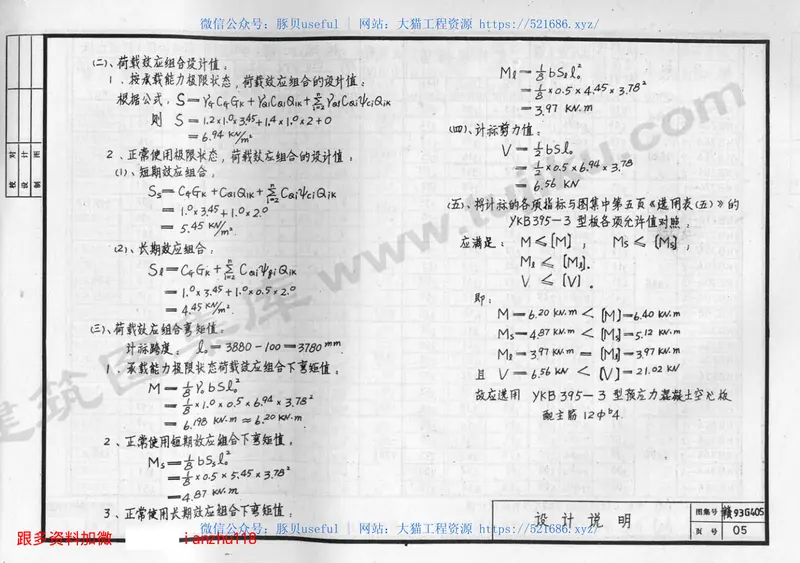 微信公众号：豚贝useful | 网站：大猫工程资源 https://521686.xyz/
(二)、荷载效应组合设计值：
1、按承载能力极限状态，荷载效应组合的设计值：
根据公式，S=γGCGGK+γQ1CQ1Q1K+∑ⁿᵢ₌₂γQiCQiψCiQiK
则 S=1.2×1.0×3.45+1.4×1.0×2+0
=6.94 KN/m²
2、正常使用极限状态，荷载效应组合的设计值：
(1)、短期效应组合：
SS=CGGK+CQ1Q1K+∑ⁿᵢ₌₂CQiψCiQiK
=1.0×3.45+1.0×2.0
=5.45 KN/m².
(2)、长期效应组合：
Sl=CGGK+∑ⁿᵢ₌₂CQiψqiQiK
=1.0×3.45+1.0×0.5×2.0
=4.45 KN/m².
(三)、荷载效应组合弯矩值：
计标跨度： l₀=3880-100=3780mm.
1、承载能力极限状态荷载效应组合下弯矩值：
M=1/8 γ₀bSl₀²
=1/8×1.0×0.5×6.94×3.78²
=6.198 KN.m≈6.20 KN.m
2、正常使用短期效应组合下弯矩值：
MS=1/8 bSSl₀²
=1/8×0.5×5.45×3.78²
=4.87 KN.m
3、正常使用长期效应组合下弯矩值：
Ml=1/8 bSll₀²
=1/8×0.5×4.45×3.78²
=3.97 KN.m
(四)、计标剪力值：
V=1/2 bSl₀
=1/2×0.5×6.94×3.78
=6.56 KN
(五)、将计标的各项指标与图集中第五页《选用表(五)》的
YKB395-3 型板各项允许值对照：
应满足： M≤[M]； MS≤[MS]；
Ml≤[Ml]。
V≤[V]。
即：
M=6.20 KN.m<[M]=6.40 KN.m
MS=4.87 KN.m<[MS]=5.12 KN.m
Ml=3.97 KN.m=[Ml]=3.97 KN.m
且 V=6.56 KN<[V]=21.02 KN
故应选用 YKB395-3 型预应力混凝土空心板
配主筋 12φᵇ4.
校 对
设 计
制 图
设计说明
图集号 赣93G405
页 号 05
www.tujiku.com
建筑图集库
微信公众号：豚贝useful | 网站：大猫工程资源 https://521686.xyz/
跟多资料加微
ianzhu118